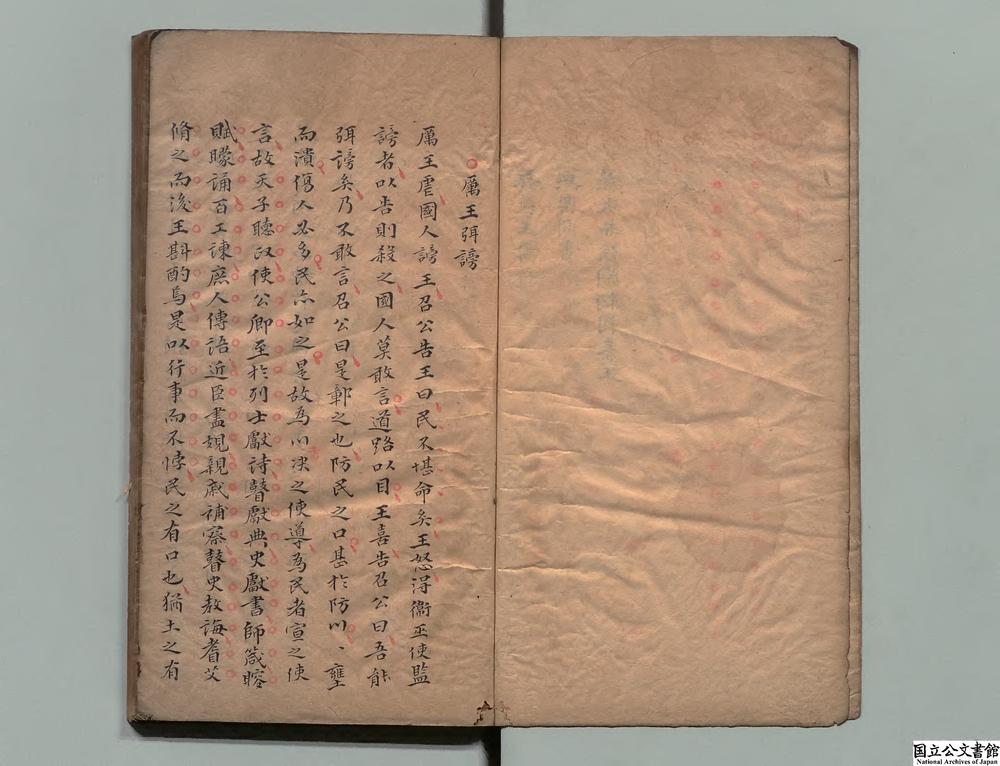 厲王弭謗
厲王虐國人謗王召公告王曰民不堪命矣王怒得衛巫使監
謗者以告則殺之國人莫敢言道路以目王喜告召公曰吾能
弭謗矣乃不敢言召公曰是鄣之也防民之口甚於防川〻壅
而潰傷人必多民亦如之是故為川决之使導為民者宣之使
言故天子聽政使公卿至於列士獻詩瞽獻典史獻書師箴瞍
賦矇誦百工諫庶人傳語近臣盡規親戚補察瞽史教誨耆艾
脩之而後王斟酌焉是以行事而不悖民之有口也猶土之有
国立公文書館
National Archives of Japan